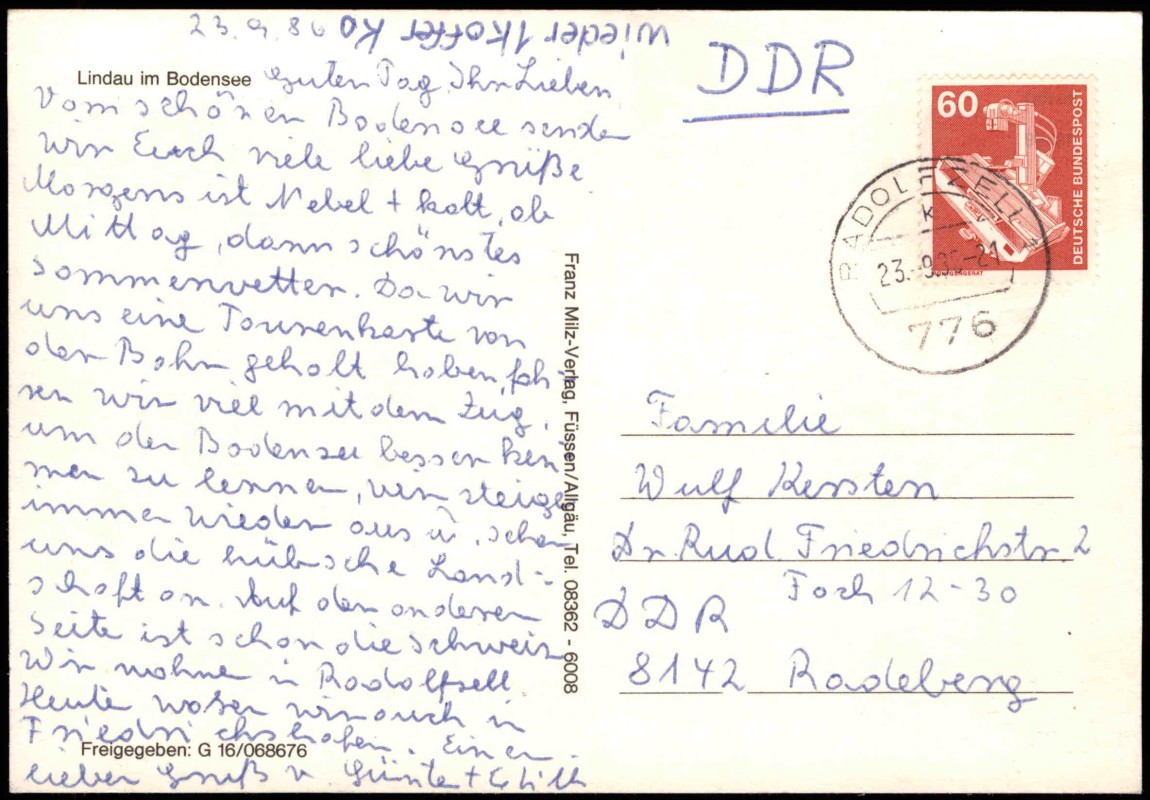 23.9.86
wieder 1 Koffer
Lindau im Bodensee
Guten Tag Ihr Lieben
Vom schönen Bodensee senden
wir Euch viele liebe Grüße.
Morgens ist Nebel + kalt, ab
Mittag, dann schönstes
Sommerwetter. Da wir
uns eine Tourenkarte von
der Bahn geholt haben, fah-
ren wir viel mit dem Zug,
um den Bodensee besser ken
nen zu lernen, wir steigen
immer wieder aus u. sehen
uns die hübsche Land-
schaft an. Auf der anderen
Seite ist schon die Schweiz
Wir wohnen in Radolfzell.
Heute waren wir auch in
Friedrichshafen. Einen
Freigegeben: G 16/068676
lieber Gruß v. Günter +
Franz Milz-Verlag, Füssen/Allgäu, Tel. 08362 - 6008
DDR
60
DEUTSCHE BUNDESPOST
RADOLFZELL
k
23.-9.86-21
776
Familie
Wulf Kersten
Dr. Rud. Friedrichstr. 2
Fach 12-30
DDR
8142 Radeberg